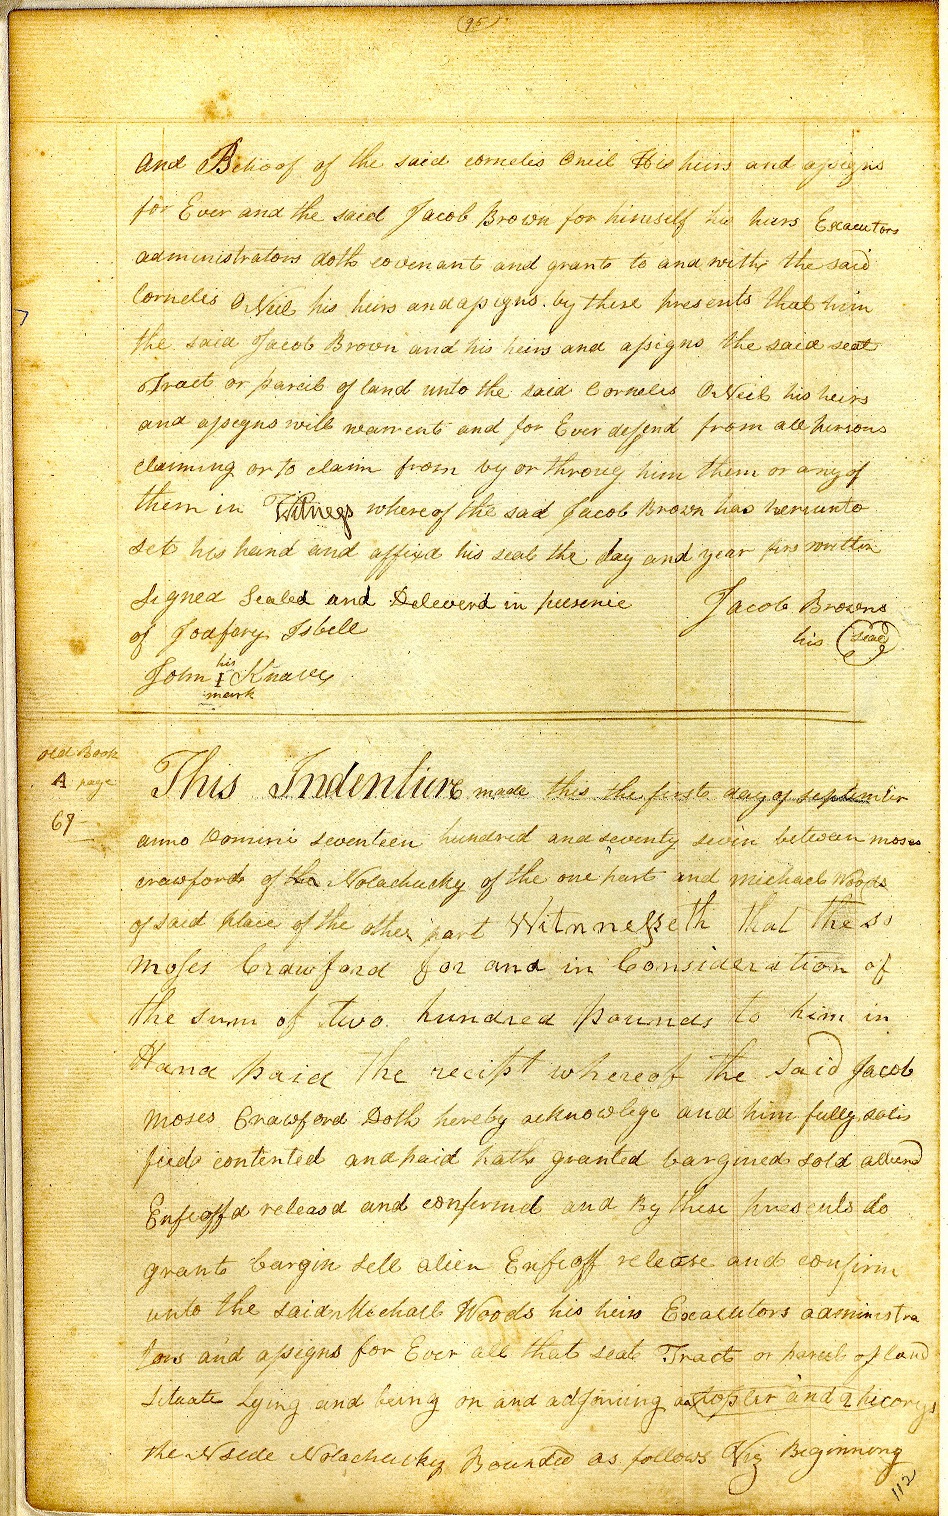 (95)
and Behoof of the said cornelis Oneil His heirs and assigns
for Ever and the said Jacob Brown for himself his heirs Exacutors
administrators doth covenant and grant to and with the said
Cornelis ONeil his heirs and assigns by these presents that him
the said Jacob Brown and his heirs and assigns the said seat
Tract or parcil of land unto the said Cornelis ONeil his heirs
and assigns will warrent and for Ever defend from all persons
claiming or to claim from by or throug him them or any of
them in Witness whereof the sad Jacob Brown has hereunto
set his hand and affixd his seal the day and year firs written
Signed Sealed and Deleverd in presence Jacob Browns
of Jodfary Isbell his seal
John his I Knaves
mark
Old Book
A page
69
This Indenture made this the first day of september
anno Domini seventeen hundred and seventy seven between moses
crawford of the Nolachucky of the one part and michael Woods
of said place of the other part Witnnesseth that the sd
Moses Crawford for and in Consideration of
the sum of two hundred pounds to him in
Hand paid the recipt whereof the said Jacob
Moses Crawford Doth hereby acknowlege and him fully satis
fied contented and paid hath granted bargined sold aliend
Enfeoffd releasd and confirmd and By these presents do
grant bargin sell alien Enfeoff release and confirm
unto the said Michael Woods his heirs Exacutors administra
tors and assigns for Ever all that seat Tract or parcel of land
Situate Lying and being on and adjoining a popler and 2 hicorys
the N side Nolachucky Bounded as follows Viz Beginning
112